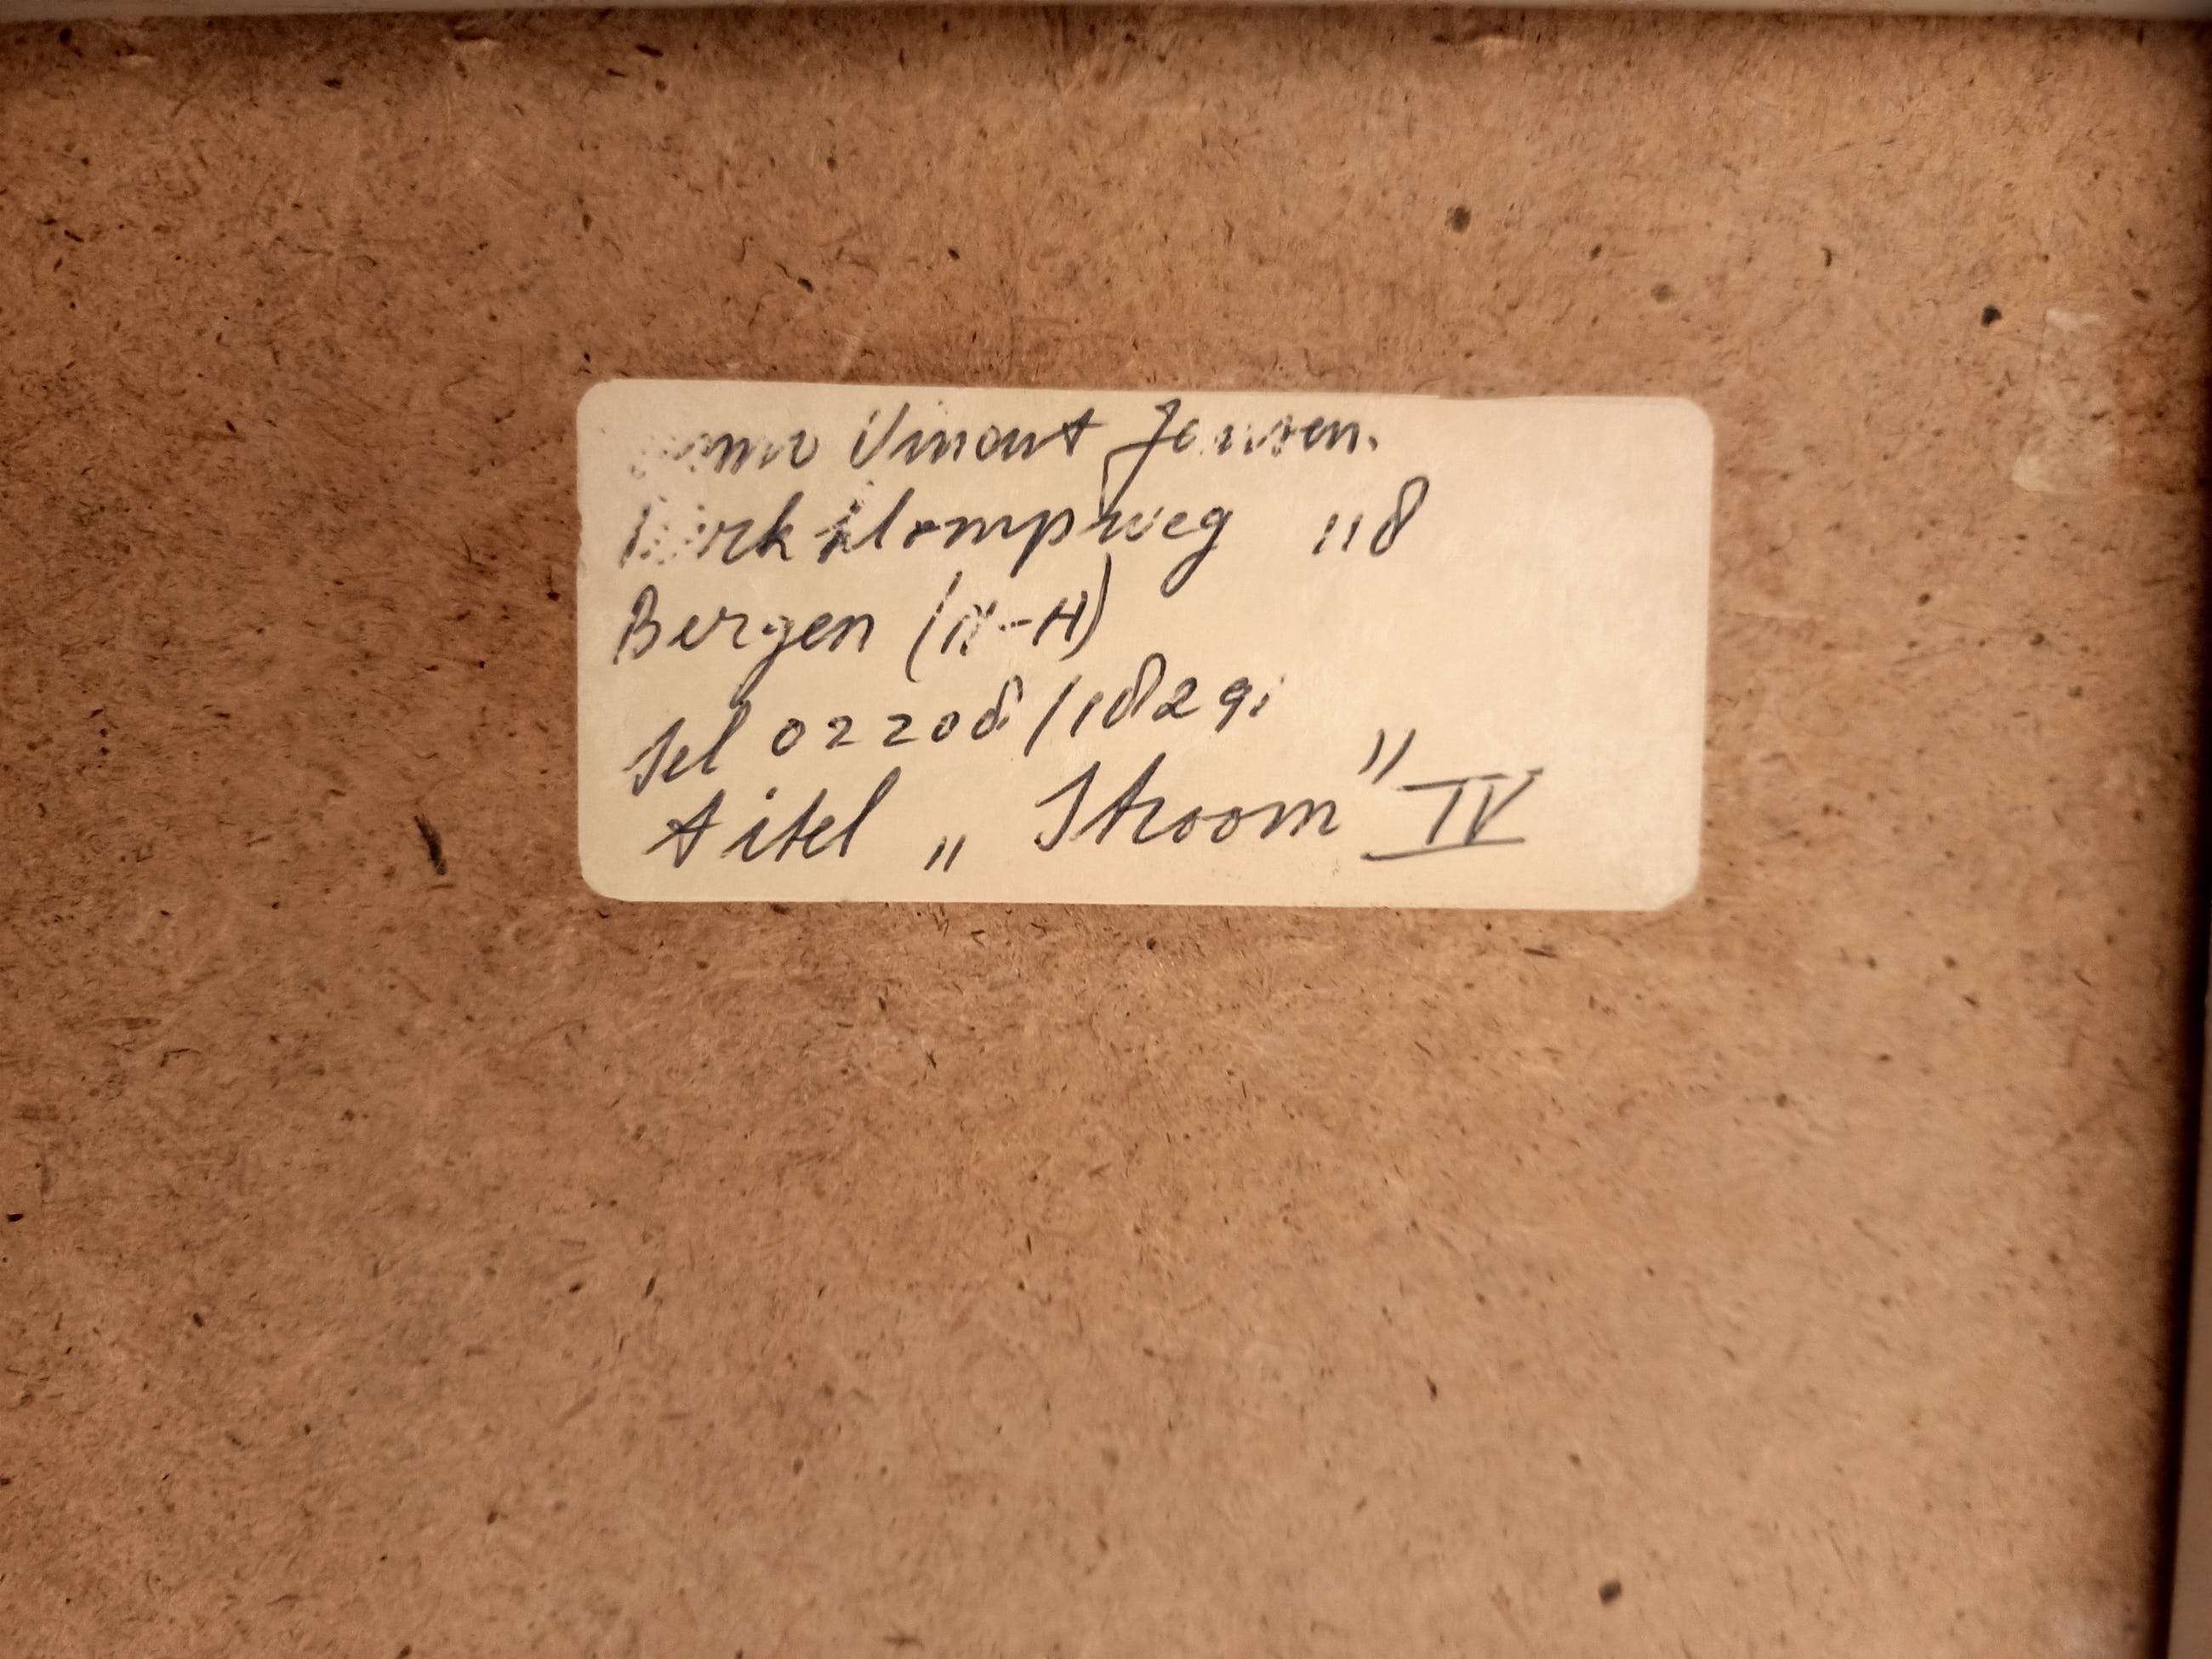 Vinout Jansen.
Dirk Klompweg 118
Bergen (N-H)
Tel 02208/18291
titel „ Stroom" IV